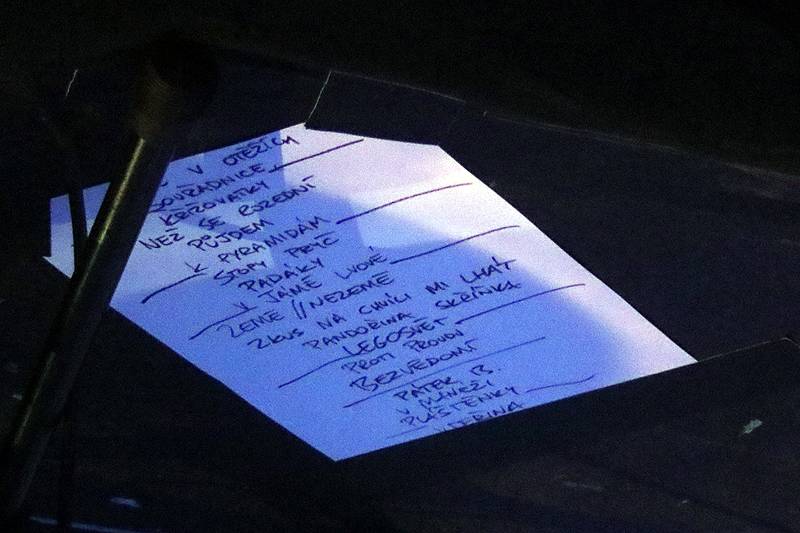 V OTĚŽÍCH
SOUŘADNICE
KŘIŽOVATKY
NEŽ SE ROZEDNÍ
PŮJDEM
K PYRAMIDÁM
STOPY PRYČ
PADÁKY
V JÁMĚ LVOVÉ
ZEMĚ // NEZEMĚ
ZKUS NA CHVÍLI MI LHÁT
PANDOŘINA SKŘÍŇKA
LEGOSVĚT
PROTI PROUDU
BEZVĚDOMÍ
PÁTEK B.
V MANÉŽI
PLÁŠTĚNKY